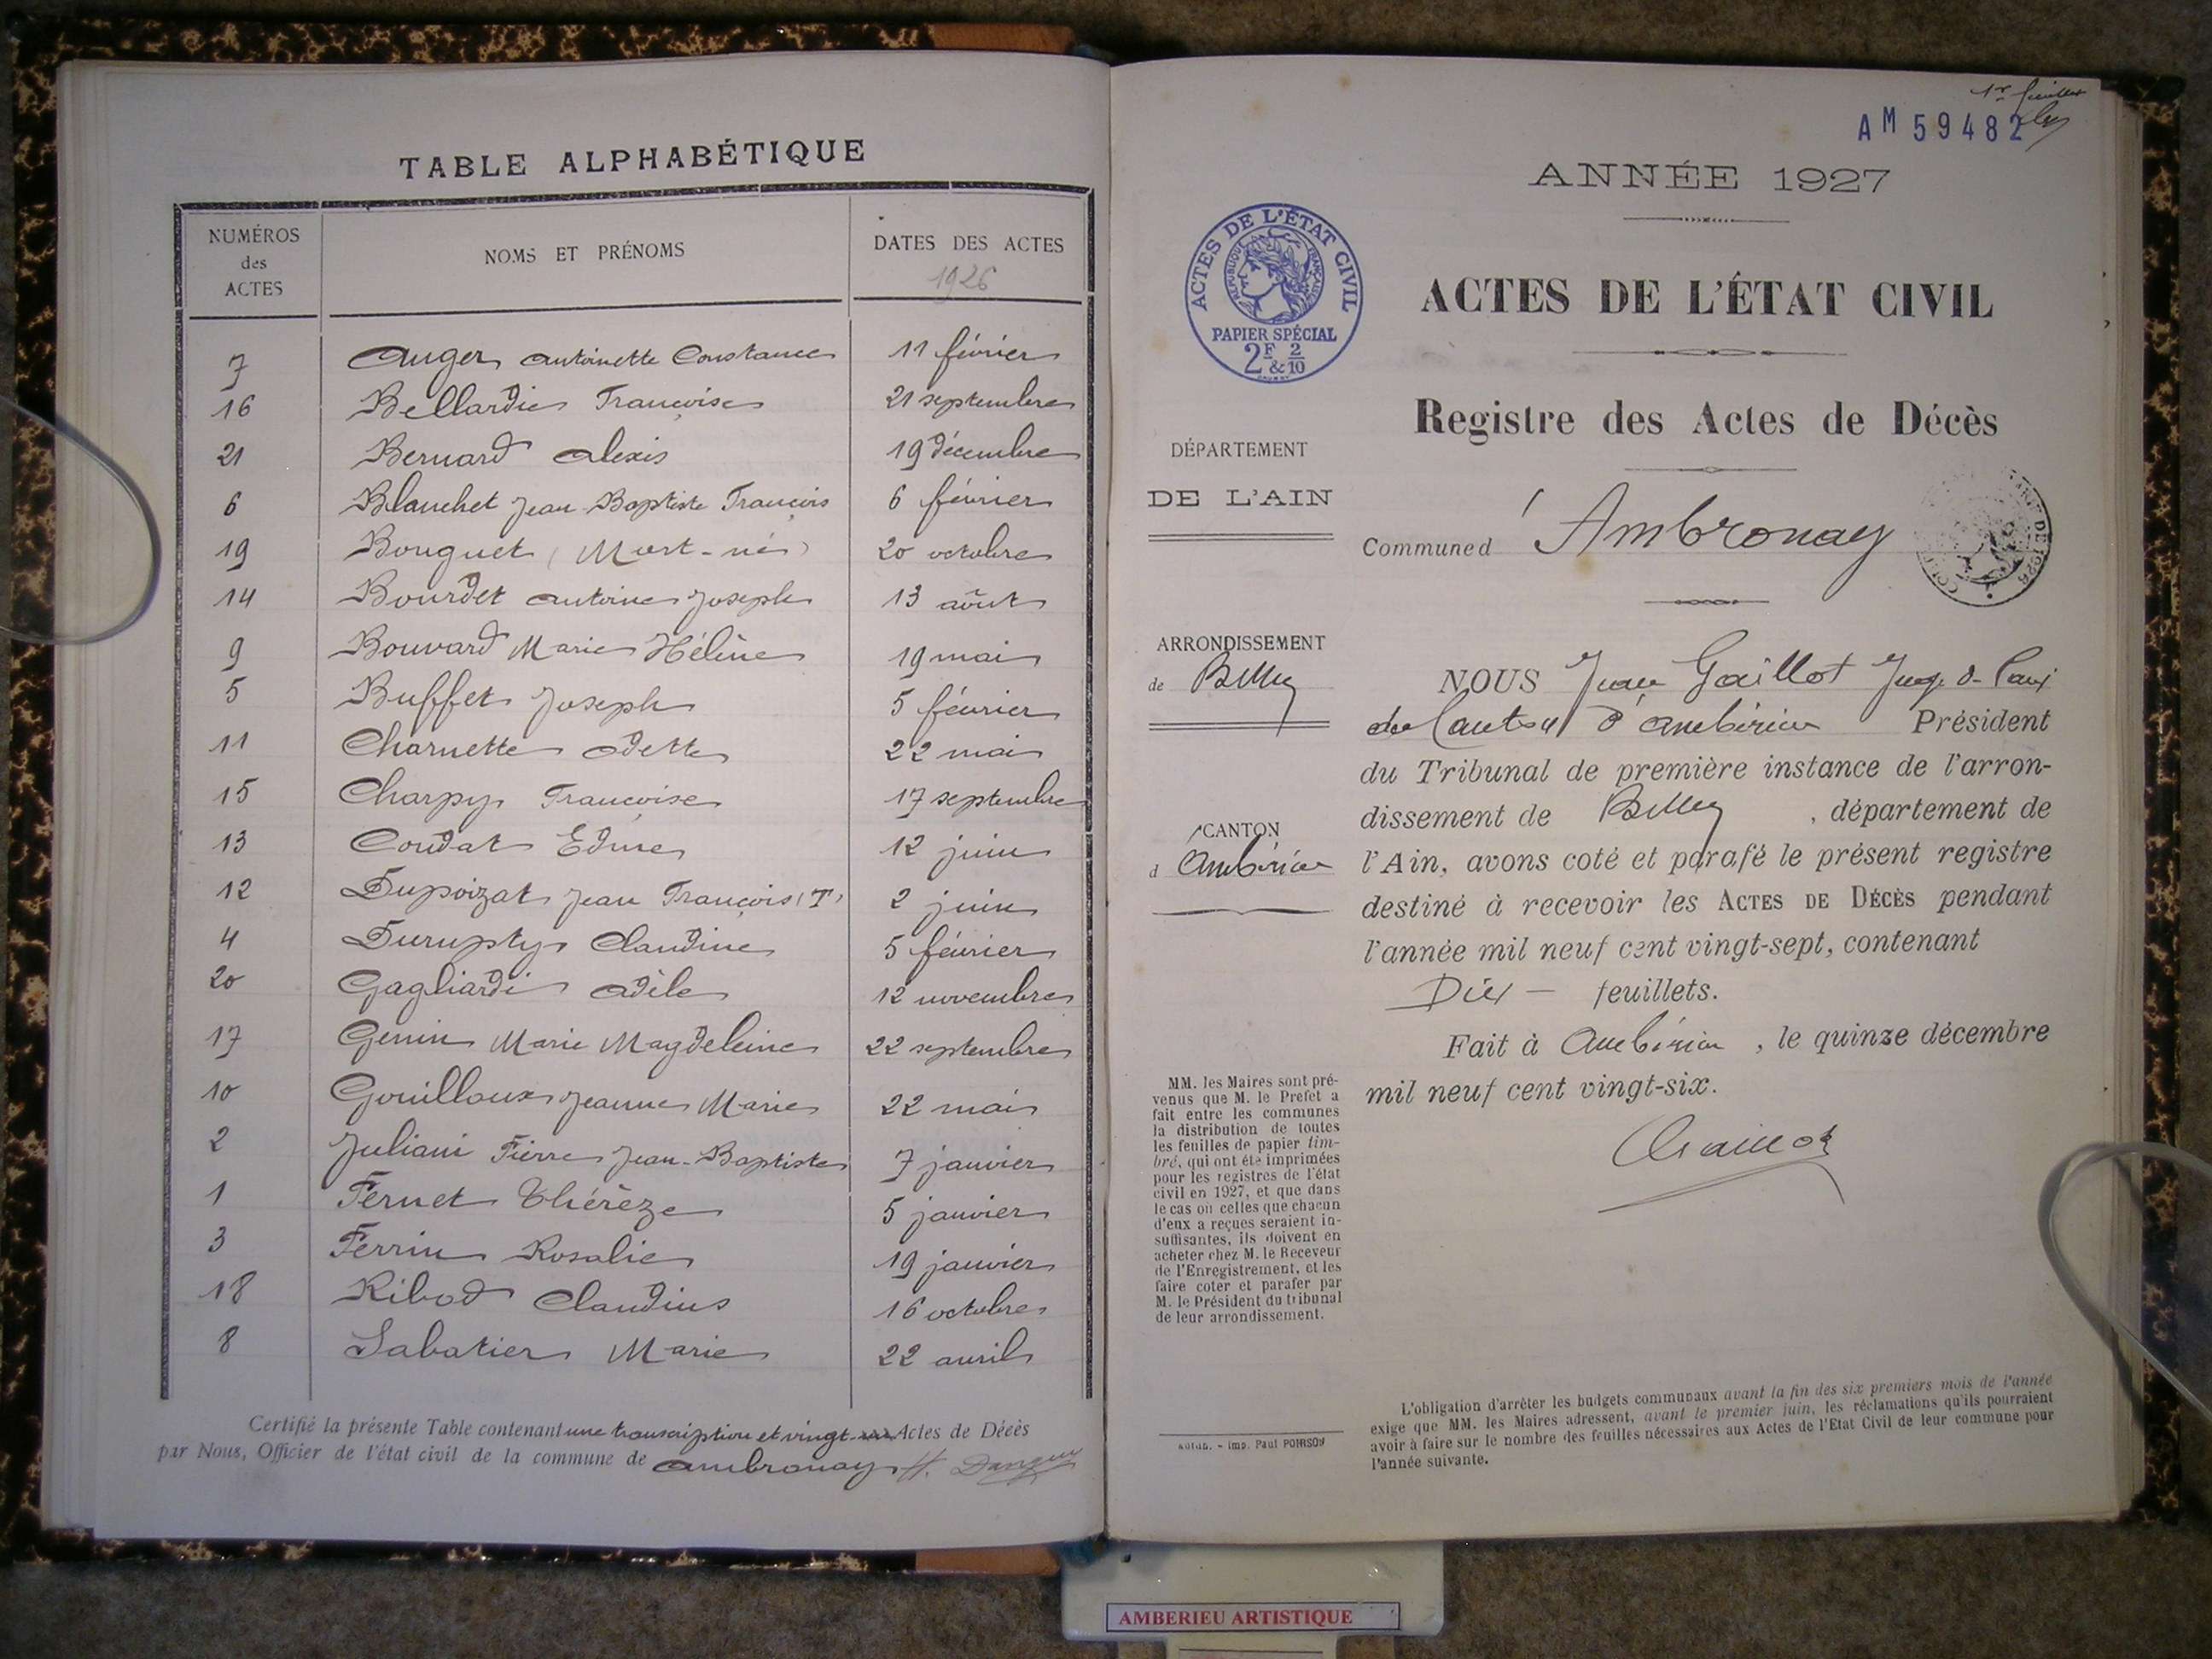 TABLE ALPHABÉTIQUE
NUMÉROS des ACTES NOMS ET PRÉNOMS DATES DES ACTES
1926
7 Auger Antoinette Constance 11 février
16 Bellardie Françoise 21 septembre
21 Bernard Alexis 19 décembre
6 Blanchet Jean-Baptiste François 6 février
19 Bouguet (Mort-né) 20 octobre
14 Bourdet Antoine Joseph 13 août
9 Bouvard Marie Hélène 19 mai
5 Buffet Joseph 5 février
11 Charnette Odette 22 mai
15 Charpy Françoise 17 septembre
13 Coudat Edme 12 juin
12 Dupoizat Jean François (T) 2 juin
4 Durupty Claudine 5 février
20 Gagliardi Adèle 12 novembre
17 Genin Marie Magdeleine 22 septembre
10 Gouilloux Jeanne Marie 22 mai
2 Juliani Pierre Jean-Baptiste 7 janvier
1 Pernet Thérèze 5 janvier
3 Perrin Rosalie 19 janvier
18 Ribod Claudius 16 octobre
8 Sabatier Marie 22 avril
Certifié la présente Table contenant une transcription et vingt Actes de Décès
par Nous, Officier de l'état civil de la commune de Ambronay
1er feuillet
AM 59482
ANNÉE 1927
ACTES DE L'ÉTAT CIVIL
RÉPUBLIQUE FRANÇAISE
PAPIER SPÉCIAL
2F & 2/10
ACTES DE L'ÉTAT CIVIL
Registre des Actes de Décès
DÉPARTEMENT
DE L'AIN
Commune d' Ambronay
ARRONDISSEMENT
de Belley
CANTON
d' Ambérieu
NOUS Jean Gaillot Juge de Paix
du Canton d'Ambérieu Président
du Tribunal de première instance de l'arron-
dissement de Belley, département de
l'Ain, avons coté et parafé le présent registre
destiné à recevoir les ACTES DE DÉCÈS pendant
l'année mil neuf cent vingt-sept, contenant
Dix — feuillets.
Fait à Ambérieu, le quinze décembre
mil neuf cent vingt-six.
Gaillot
MM. les Maires sont pré-
venus que M. le Préfet a
fait entre les communes
la distribution de toutes
les feuilles de papier tim-
bré, qui ont été imprimées
pour les registres de l'état
civil en 1927, et que dans
le cas où celles que chacun
d'eux a reçues seraient in-
suffisantes, ils doivent en
acheter chez M. le Receveur
de l'Enregistrement, et les
faire coter et parafer par
M. le Président du tribunal
de leur arrondissement.
Imp. Paul POIRSON
L'obligation d'arrêter les budgets communaux avant la fin des six premiers mois de l'année
exige que MM. les Maires adressent, avant le premier juin, les réclamations qu'ils pourraient
avoir à faire sur le nombre des feuilles nécessaires aux Actes de l'État Civil de leur commune pour
l'année suivante.
AMBERIEU ARTISTIQUE